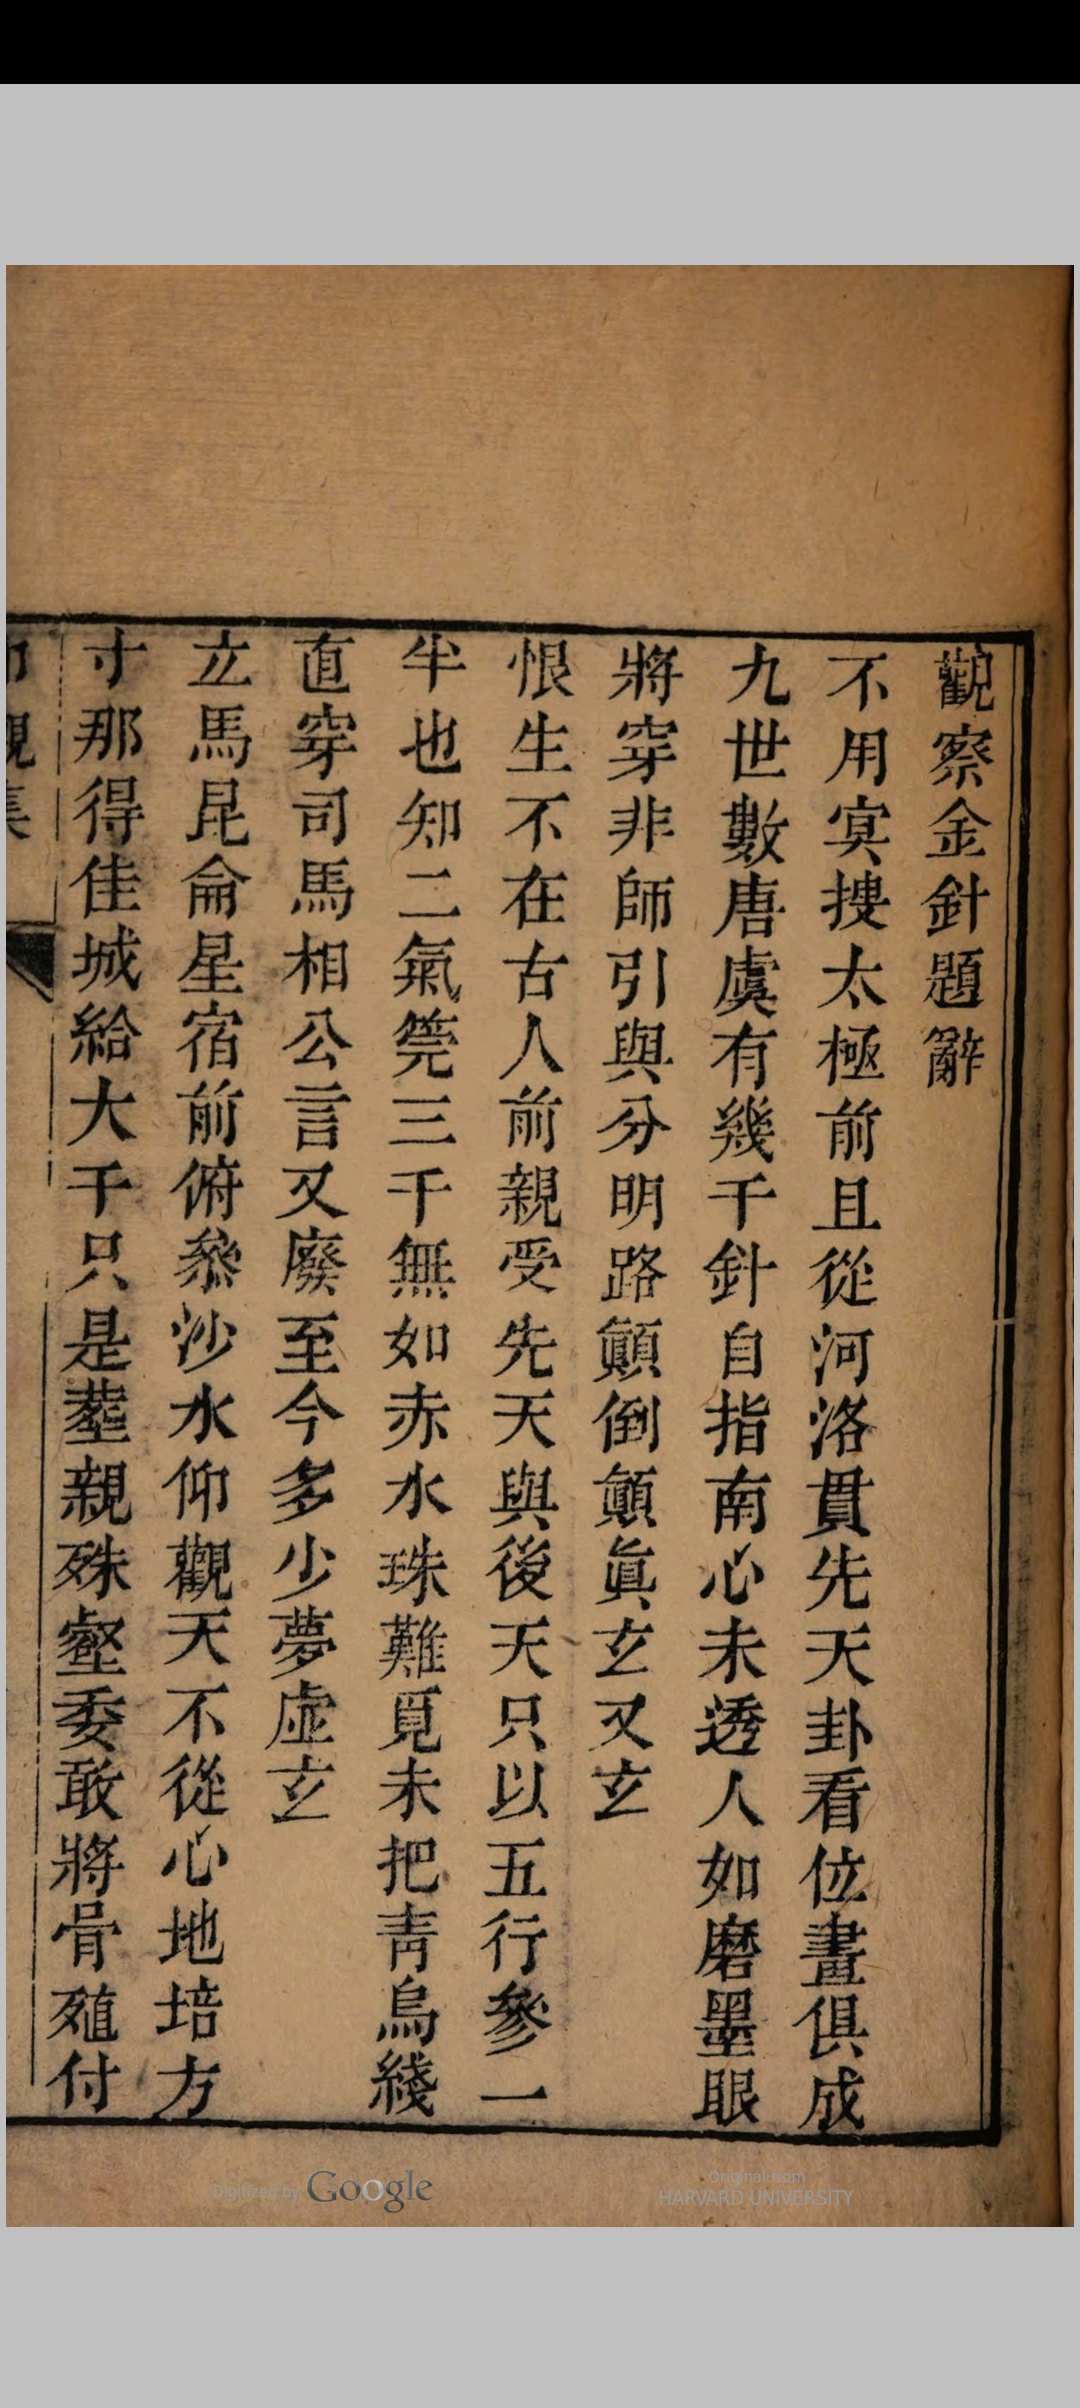 觀察金針題辭
不用㝠搜太極前且從河洛貫先天卦看位畫俱成
九世數唐虞有幾千針自指南心未透人如磨墨眼
將穿非師引與分明路顛倒顛眞玄又玄
恨生不在古人前親受先天與後天只以五行參一
半也知二氣筦三千無如赤水珠難覓未把靑烏綫
直穿司馬相公言又廢至今多少夢虛玄
立馬昆侖星宿前俯叅沙水仰觀天不從心地培方
寸那得佳城給大千只是塟親殊壑委敢將骨殖付
Digitized by Google
Original from
HARVARD UNIVERSITY